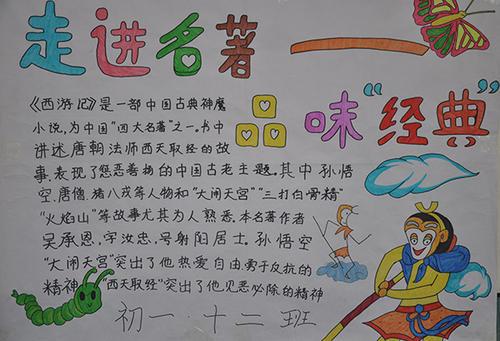 走进名著
品味“经典”
《西游记》是一部中国古典神魔
小说,为中国“四大名著”之一。书中
讲述唐朝法师西天取经的故
事,表现了惩恶善扬的中国古老主题。其中孙悟
空.唐僧.猪八戒等人物和“大闹天宫”“三打白骨精”
“火焰山”等故事尤其为人熟悉.本名著作者
吴承恩,字汝忠,号射阳居士.孙悟空
“大闹天宫”突出了他热爱自由勇于反抗的
精神“西天取经”突出了他见恶必除的精神
初一·十二班